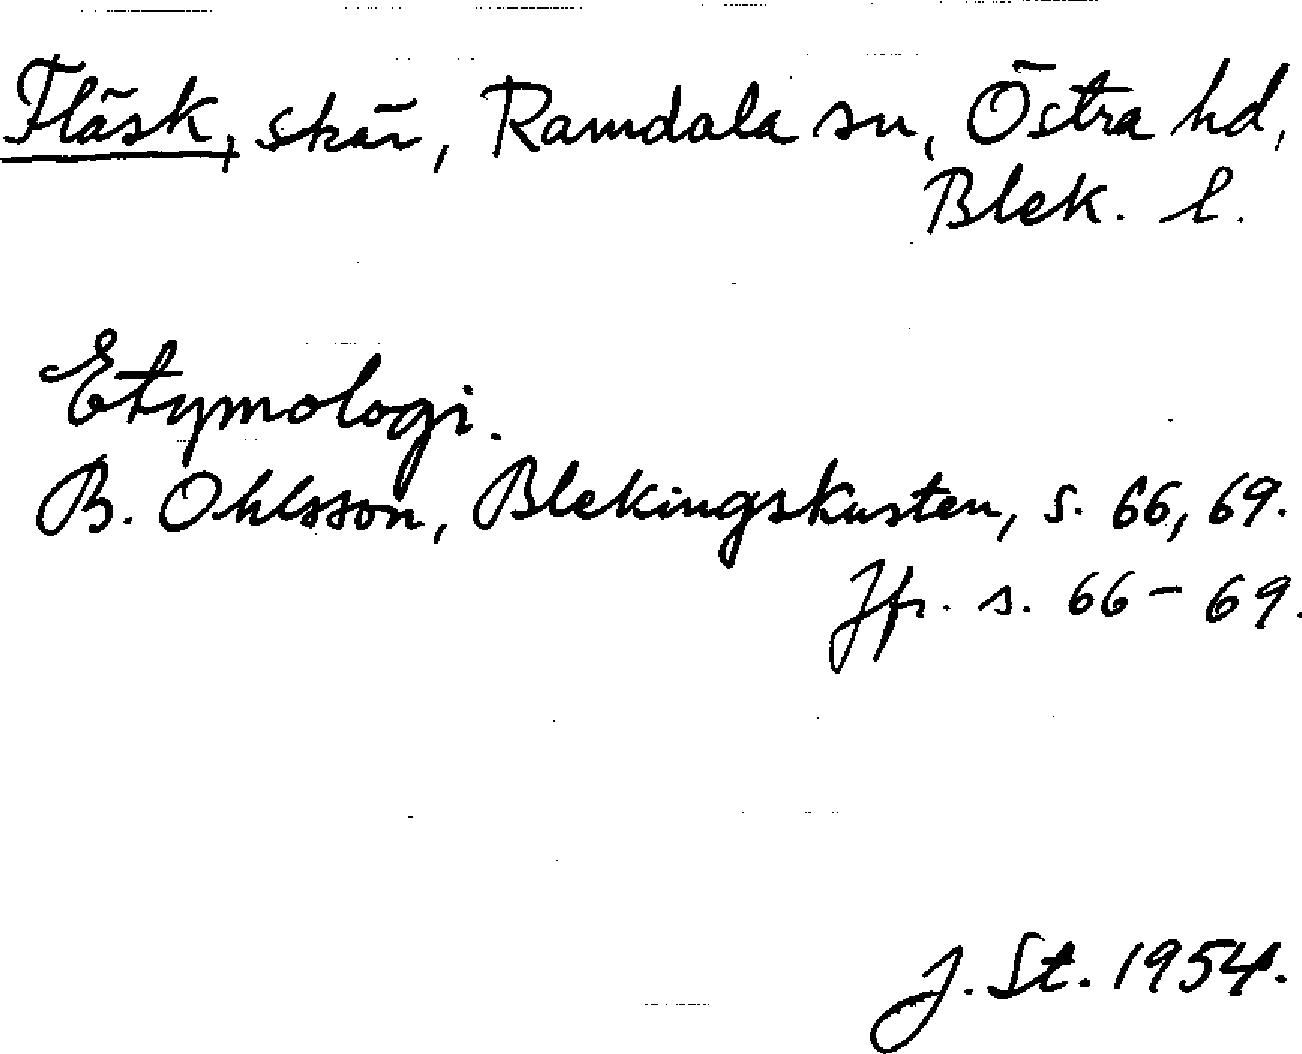 Fläsk, skär, Ramdala sn, Östra hd,
Blek. l.
Etymologi.
B. Ohlsson, Blekingskusten, s. 66, 69.
Jfr. s. 66-69.
J. St. 1954.